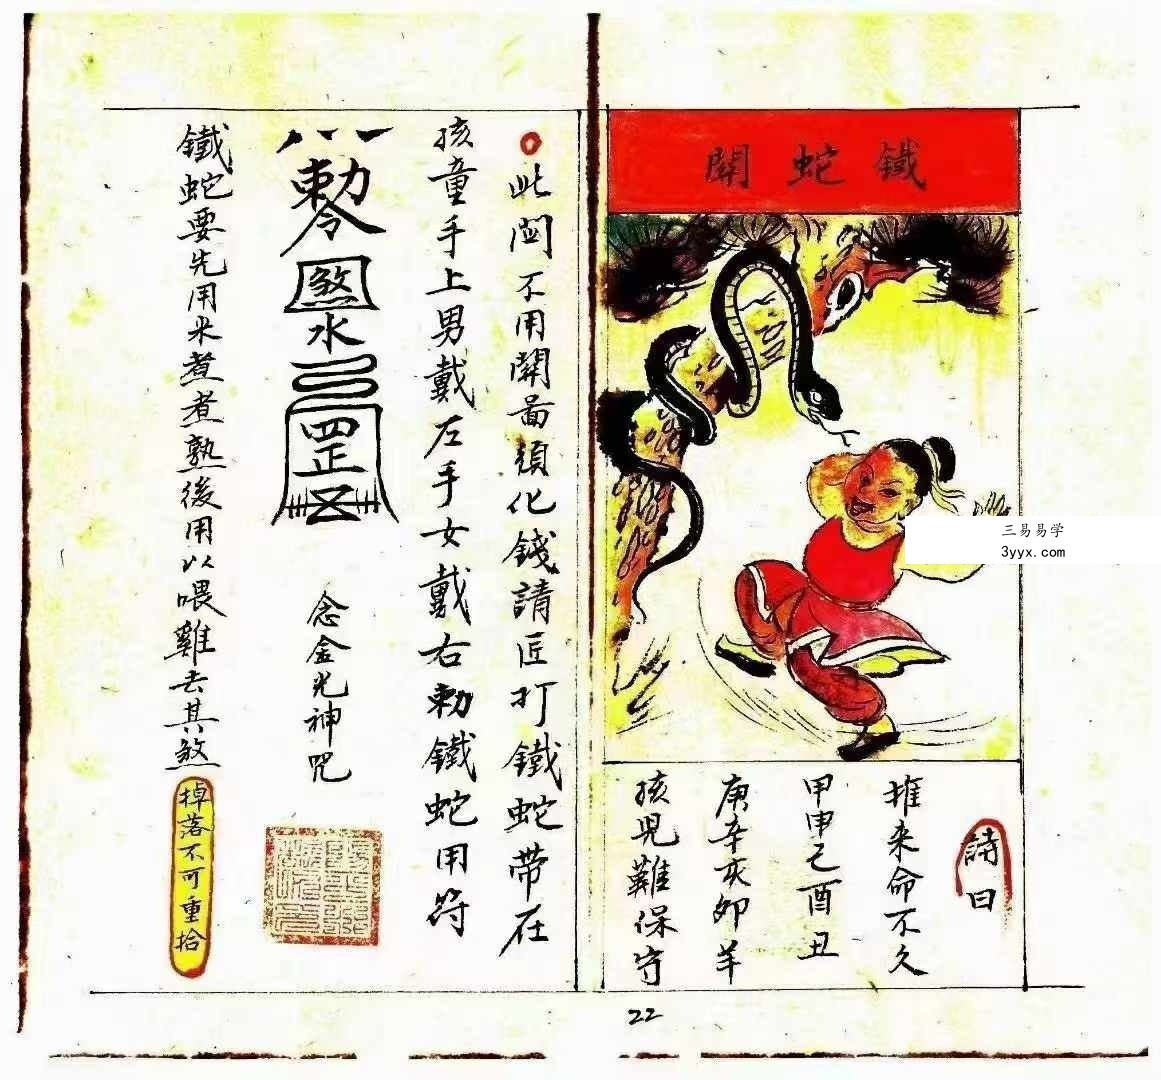 鐵蛇關
詩曰
推来命不久
甲申乙酉丑
庚辛亥夘羊
孩児難保守
此関不用関啚須化錢請匠打鐵蛇带在
孩童手上男戴左手女戴右勅鐵蛇用符
勅令
煞
水
罡
念金光神咒
鐵蛇要先用米煮煮熟後用以喂雞去其煞
掉落不可重拾
22
三易易学
3yyx.com